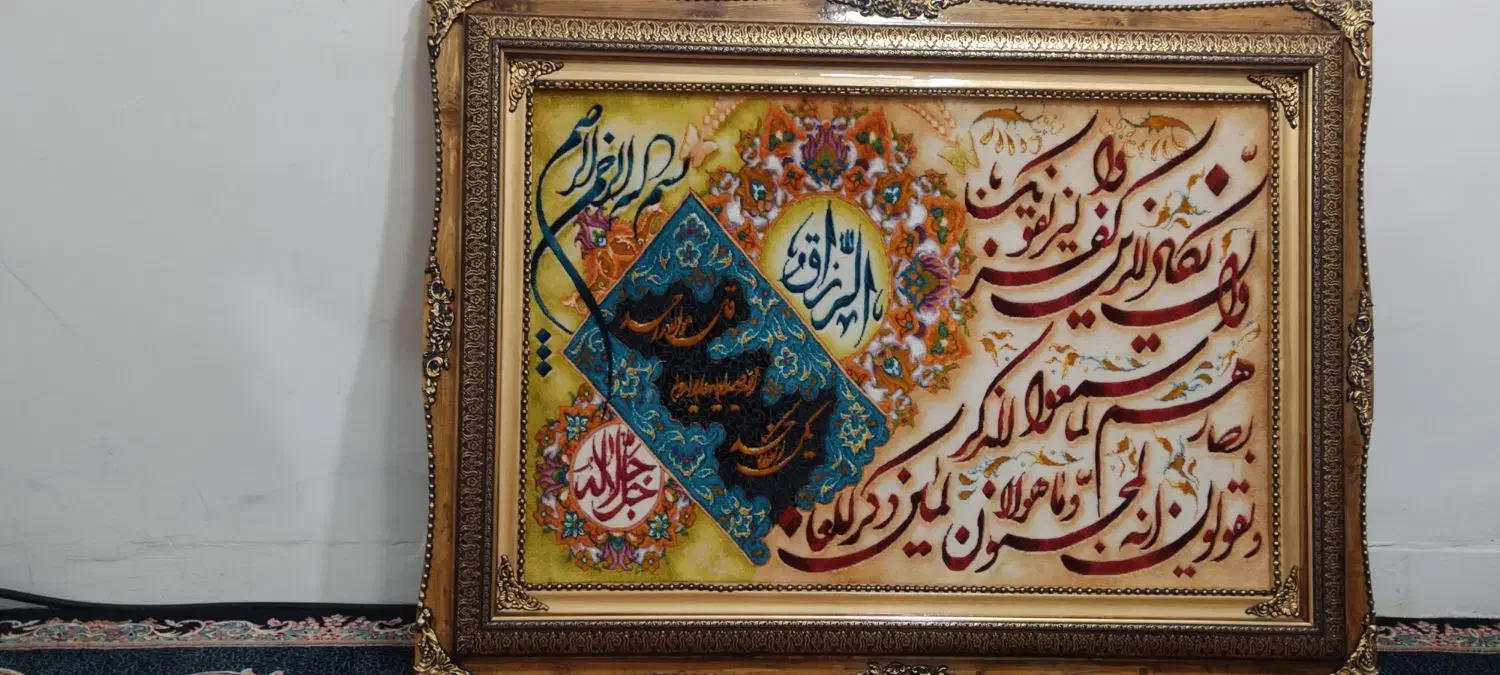 بسم الله الرحمن الرحیم
وان یکاد الذین کفروا لیزلقونک
بابصارهم لما سمعوا الذکر
و یقولون انه لمجنون و ما هو الا ذکر للعالمین
الله
الرزاق
جل جلاله